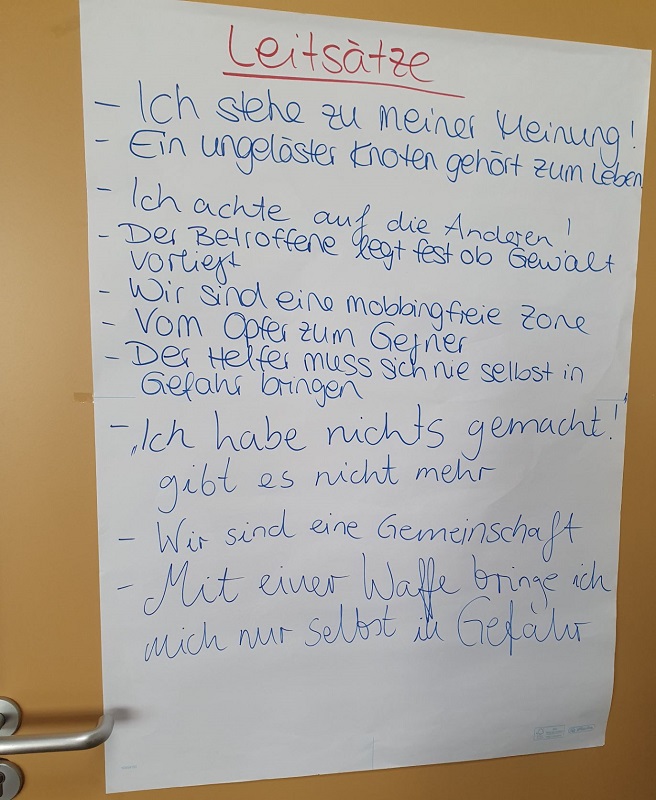 Leitsätze
- Ich stehe zu meiner Meinung!
- Ein ungelöster Knoten gehört zum Leben
- Ich achte auf die Anderen!
- Der Betroffene legt fest ob Gewalt
vorliegt
- Wir sind eine mobbingfreie Zone
- Vom Opfer zum Gegner
- Der Helfer muss sich nie selbst in
Gefahr bringen
- „Ich habe nichts gemacht!
gibt es nicht mehr
- Wir sind eine Gemeinschaft
- Mit einer Waffe bringe ich
mich nur selbst in Gefahr